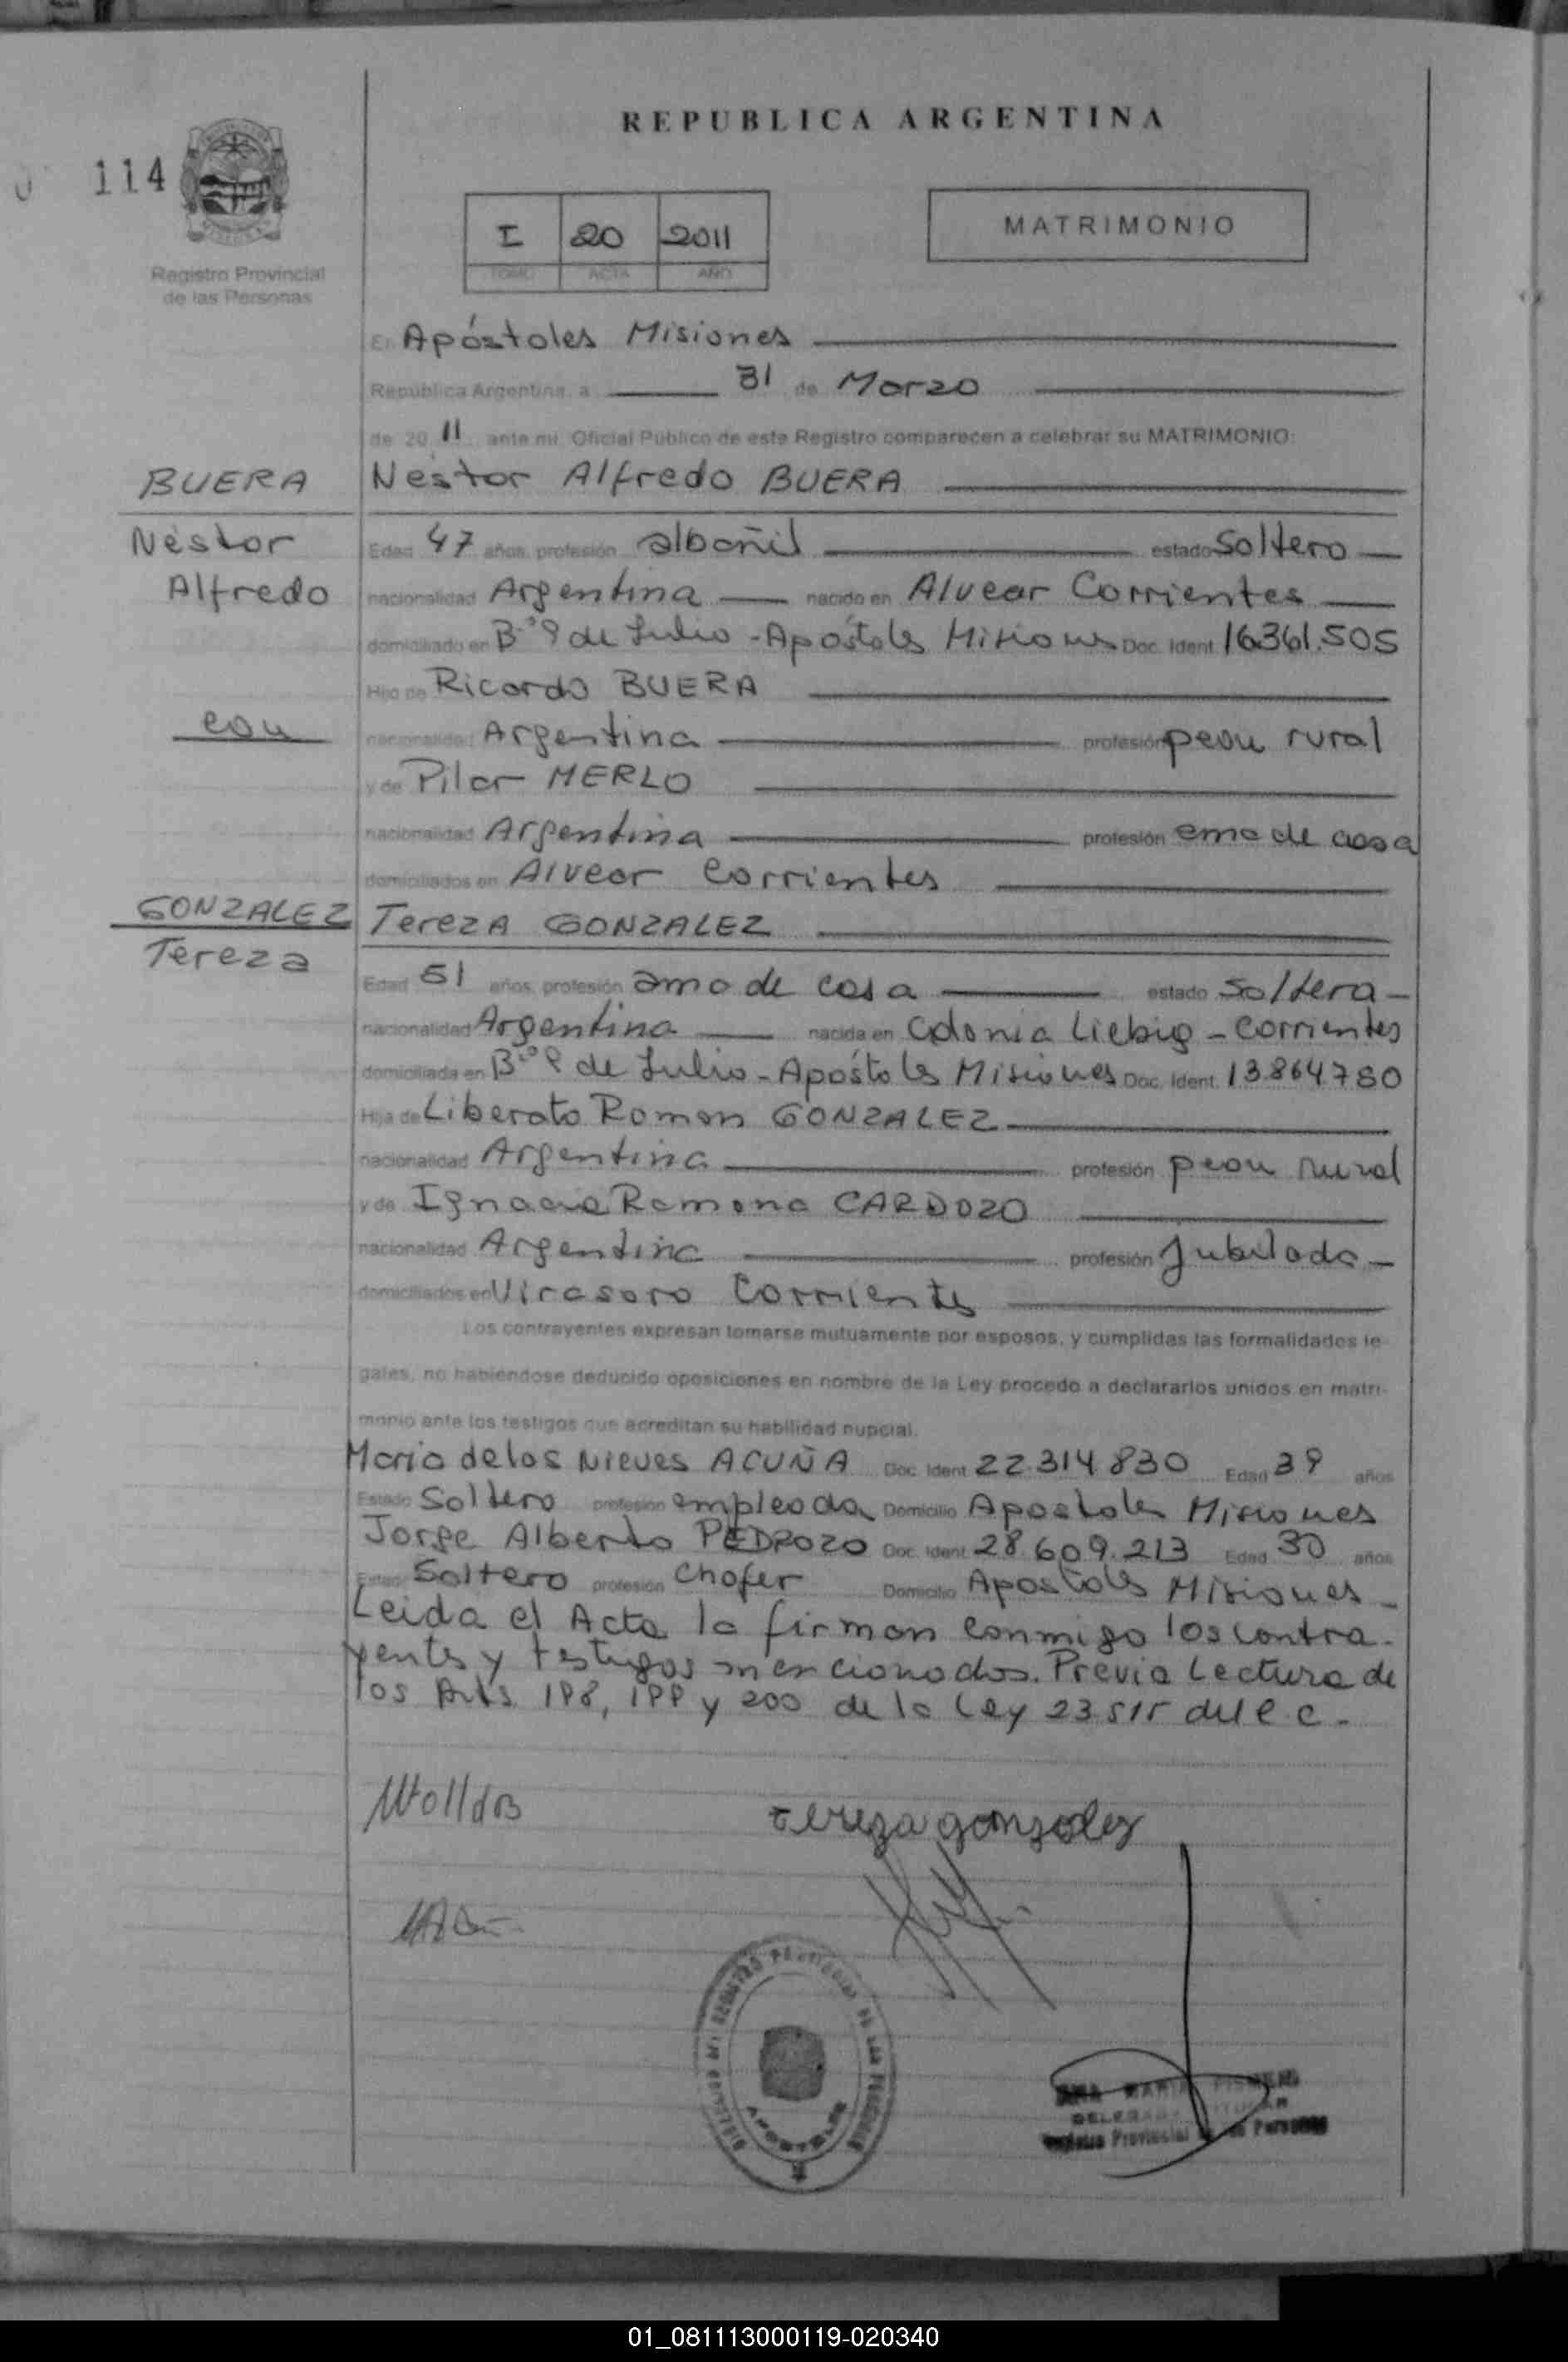 REPUBLICA ARGENTINA
114
I 20 2011
TOMO ACTA AÑO
MATRIMONIO
Registro Provincial
de las Personas
En Apóstoles Misiones
República Argentina, a 31 de Marzo
de 20 11 ante mi, Oficial Público de este Registro comparecen a celebrar su MATRIMONIO:
BUERA
Néstor
Alfredo
con
GONZALEZ
Tereza
Nestor Alfredo BUERA
Edad 47 años, profesión albañil estado Soltero
nacionalidad Argentina nacido en Alvear Corrientes
domiciliado en B° 9 de Julio - Apóstoles Misiones Doc. Ident. 16.361.505
Hijo de Ricardo BUERA
nacionalidad Argentina profesión peon rural
y de Pilar MERLO
nacionalidad Argentina profesión ama de casa
domiciliados en Alvear Corrientes
Tereza GONZALEZ
Edad 51 años, profesión ama de casa estado Soltera -
nacionalidad Argentina nacida en Colonia Liebig - Corrientes
domiciliada en B° 9 de Julio - Apóstoles Misiones Doc. Ident. 13864780
Hija de Liberato Roman GONZALEZ
nacionalidad Argentina profesión peon rural
y de Ignacia Ramona CARDOZO
nacionalidad Argentina profesión Jubilada -
domiciliados en Virasoro Corrientes
Los contrayentes expresan tomarse mutuamente por esposos, y cumplidas las formalidades le-
gales, no habiéndose deducido oposiciones en nombre de la Ley procedo a declararlos unidos en matri-
monio ante los testigos que acreditan su habilidad nupcial.
Maria de los Nieves ACUÑA Doc. Ident. 22.314.830 Edad 39 años
Estado Soltera profesión empleada Domicilio Apostoles Misiones
Jorge Alberto PEDROZO Doc. Ident. 28.609.213 Edad 30 años
Estado Soltero profesión Chofer Domicilio Apostoles Misiones -
Leida el Acta la firman conmigo los contra-
yentes y testigos mencionados. Previa Lectura de
los Arts. 198, 199 y 200 de la Ley 23515 del C.C.-
tereza gonzalez
REGISTRO PROVINCIAL DE LAS PERSONAS
APOSTOLES
MARIA
Registro Provincial de las Personas
01_081113000119-020340